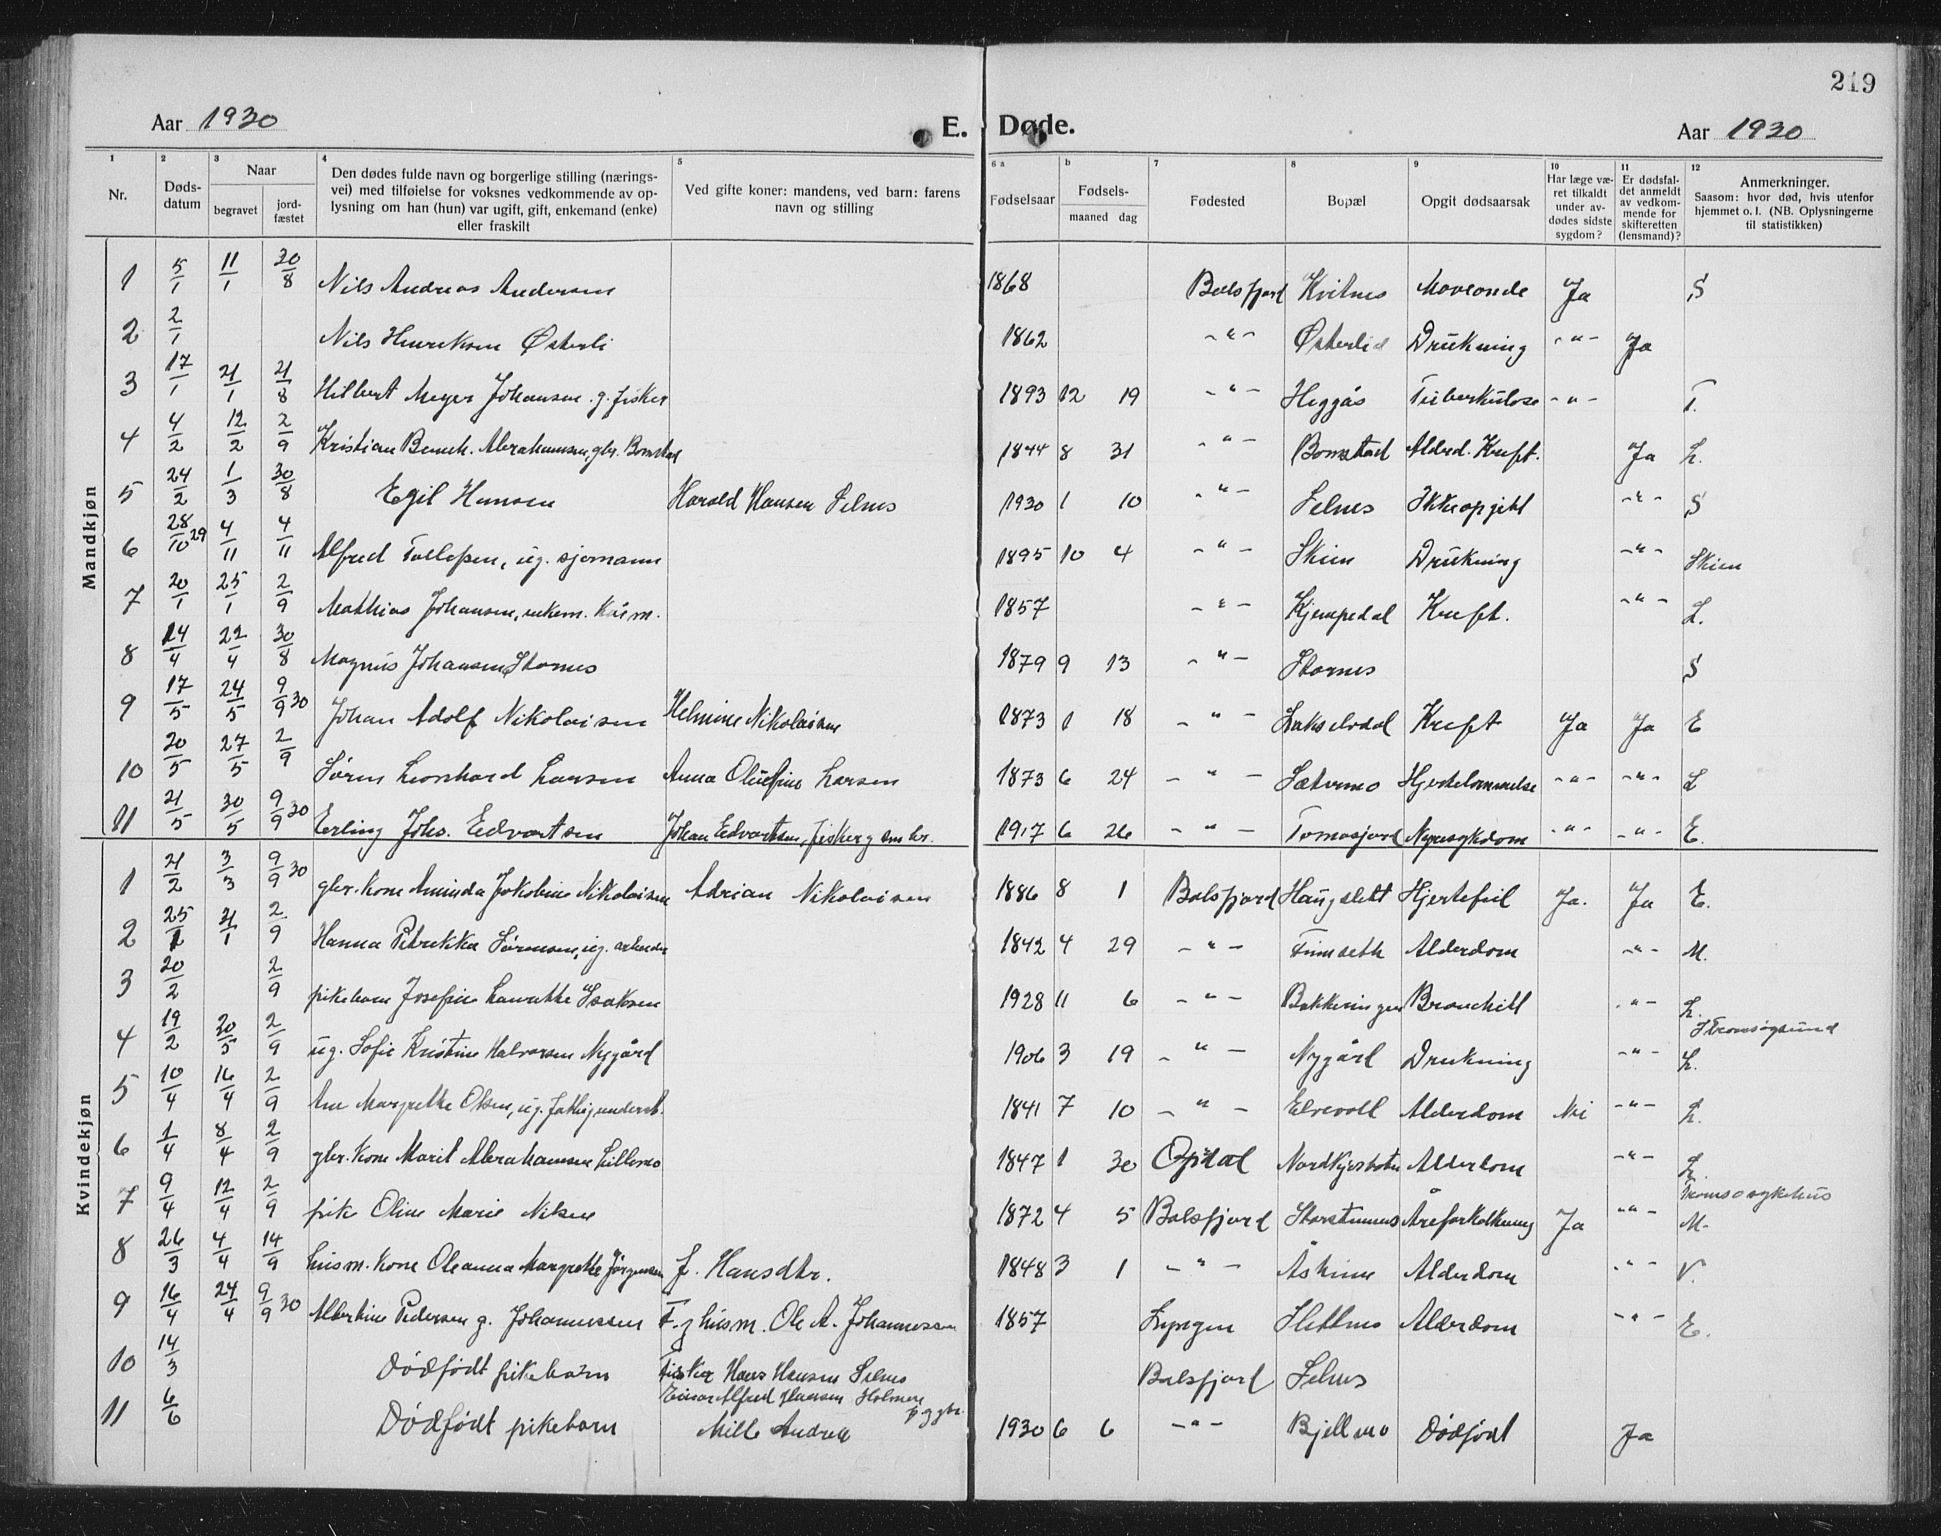 219
Aar 1930 E. Døde. Aar 1930
1 2 3 4 5 6 a b 7 8 9 10 11 12
Nr. Døds-datum Naar begravet jord-fæstet Den dødes fulde navn og borgerlige stilling (nærings-vei) med tilføielse for voksnes vedkommende av op-lysning om han (hun) var ugift, gift, enkemand (enke) eller fraskilt Ved gifte koner: mandens, ved barn: farens navn og stilling Fødselsaar Fødsels- maaned dag Fødested Bopæl Opgit dødsaarsak Har læge væ-ret tilkaldt under av-dødes sidste sygdom? Er dødsfal-det anmeldt av vedkom-mende for skifteretten (lensmand)? Anmerkninger. Saasom: hvor død, hvis utenfor hjemmet o. l. (NB. Oplysningerne til statistikken)
Mandkjøn
1 5/1 11/1 30/8 Nils Andreas Andersen 1868 Balsfjord Kvitnes Ja S
2 2/1 Nils Henriksen Østerli 1862 -"- Østerlid Drukning -"- Ja
3 17/1 21/1 21/8 Hilbert Meyer Johansen g. fisker 1893 12 19 -"- Heggås Tuberkulose -"- T.
4 4/2 12/2 2/9 Kristian Benek. Abrahamsen, gbr. Bomstad 1844 8 31 -"- Bomstad Alderd. Kreft. Ja L.
5 24/2 1/3 30/8 Egil Hansen Harald Hansen Selnes 1930 1 10 -"- Selnes Ikke opgitt -"- S
6 28/10 29 4/11 4/11 Alfred Tollefsen, ug. sjømann 1895 10 4 -"- Skien Drukning -"- Skien
7 20/1 25/1 2/9 Mathias Johansen, enkem. Kårm. 1857 -"- Kjempedal Kreft. -"- L.
8 14/4 22/4 30/8 Magnus Johansen Stornes 1879 9 13 -"- Stornes S
9 17/5 24/5 9/9 30 Johan Adolf Nikolaisen Helmine Nikolaisen 1873 1 18 -"- Lakselvdal Kreft Ja Ja E
10 20/5 27/5 2/9 Søren Leonhard Larsen Anna Olufine Larsen 1873 6 24 -"- Sætermo Hjertelammelse -"- -"- L
11 21/5 30/5 9/9 30 Erling Johs. Edvartsen Johan Edvartsen, fisker g sm br. 1917 6 26 -"- Tomasjord Nyresykdom -"- -"- E.
Kvindekjøn
1 21/2 3/3 9/9 30 gbr. kone Aminda Jakobine Nikolaisen Adrian Nikolaisen 1886 8 1 Balsfjord Haugslett Hjertefeil Ja. Ja E.
2 25/1 31/1 2/9 Hanna Petrikka Sørensen, ug. arbeider 1842 4 29 -"- Finnseth Alderdom -"- M.
3 20/2 2/9 pikebarn Josefine Isaksen 1928 11 6 -"- Bakkeningen Bronchitt -"- L.
4 19/2 20/5 2/9 ug. Sofie Kristine Halvorsen Nygård 1906 3 19 -"- Nygård Drukning -"- I Tromsøysund L.
5 10/4 16/4 2/9 Ane Margrethe Olsen, ug. fattigunderst. 1841 7 10 -"- Elvevoll Alderdom Nei -"- L.
6 1/4 8/4 2/9 gbr. kone Marit Abrahamsen Lillemo 1847 1 30 Opdal Nordkjosbotn Alderdom -"- L
7 9/4 12/4 2/9 pike Oline Marie Nilsen 1872 4 5 Balsfjord Storsteinnes Åreforkalkning Ja -"- Tromsø sykehus M.
8 26/3 4/4 14/9 husm. kone Oleanna Margrethe Jørgensen f. Hansdtr. 1848 3 1 -"- Alderdom -"- V.
9 16/4 24/4 9/9 30 Albertine Pedersen g. Johannessen F. g husm. Ole A. Johannessen 1857 Lyngen Slettnes Alderdom -"- E.
10 14/3 Dødfødt pikebarn Fisker Hans Hansen Selnes Balsfjord Selnes
11 6/6 Dødfødt pikebarn Einar Alfred Hansen Holmen f. g gbr. Mille Andrea 1930 6 6 -"- Bjellmo Dødfødt Ja